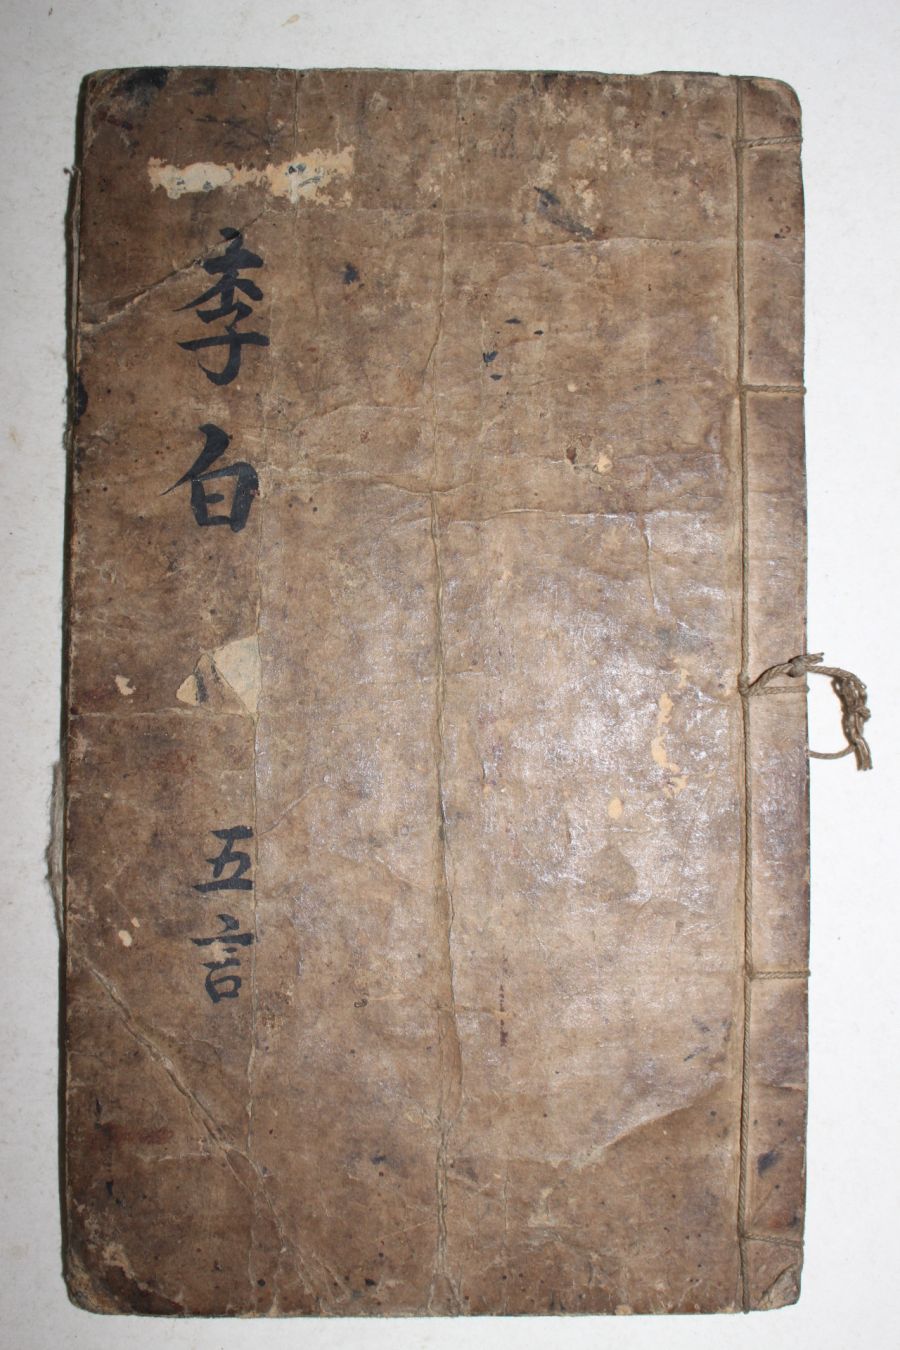 李白
五言